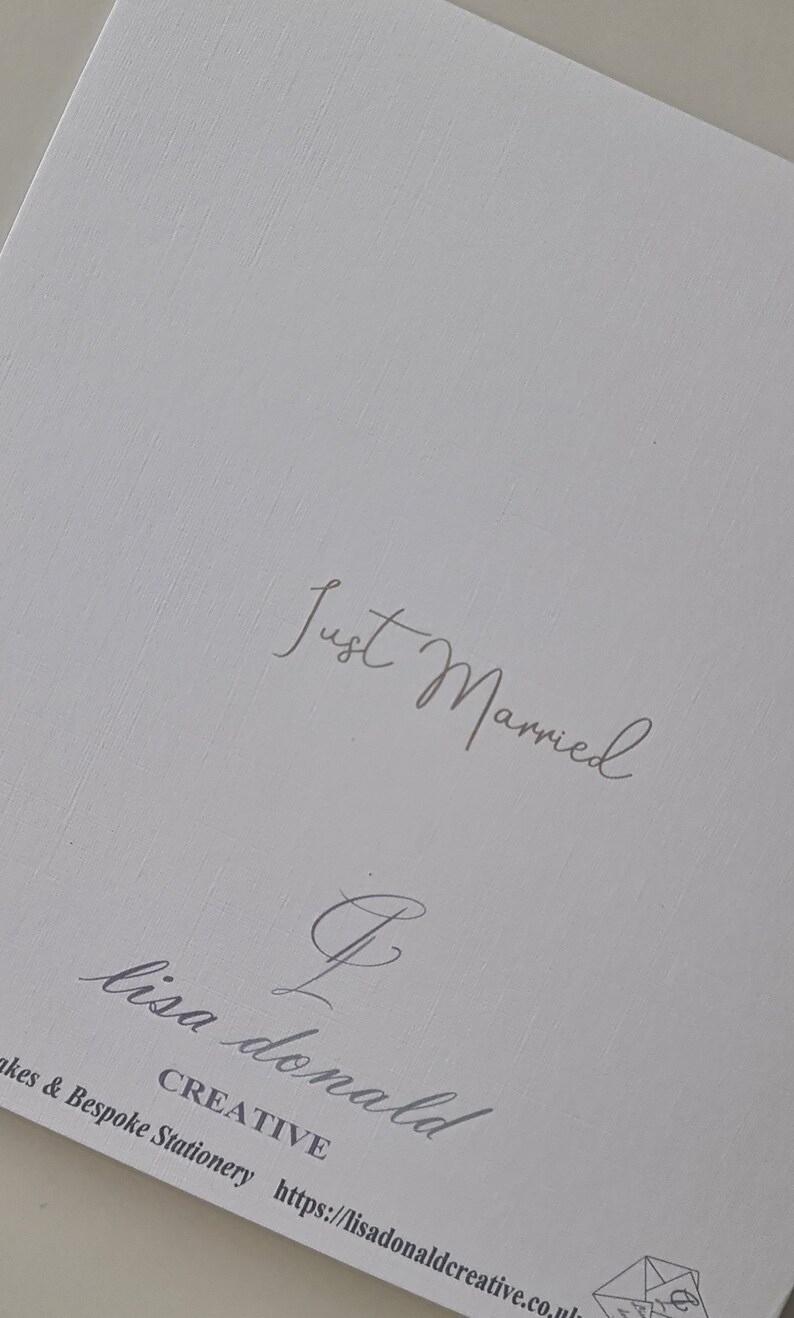 Just Married
lisa donald
CREATIVE
akes & Bespoke Stationery https://lisadonaldcreative.co.uk